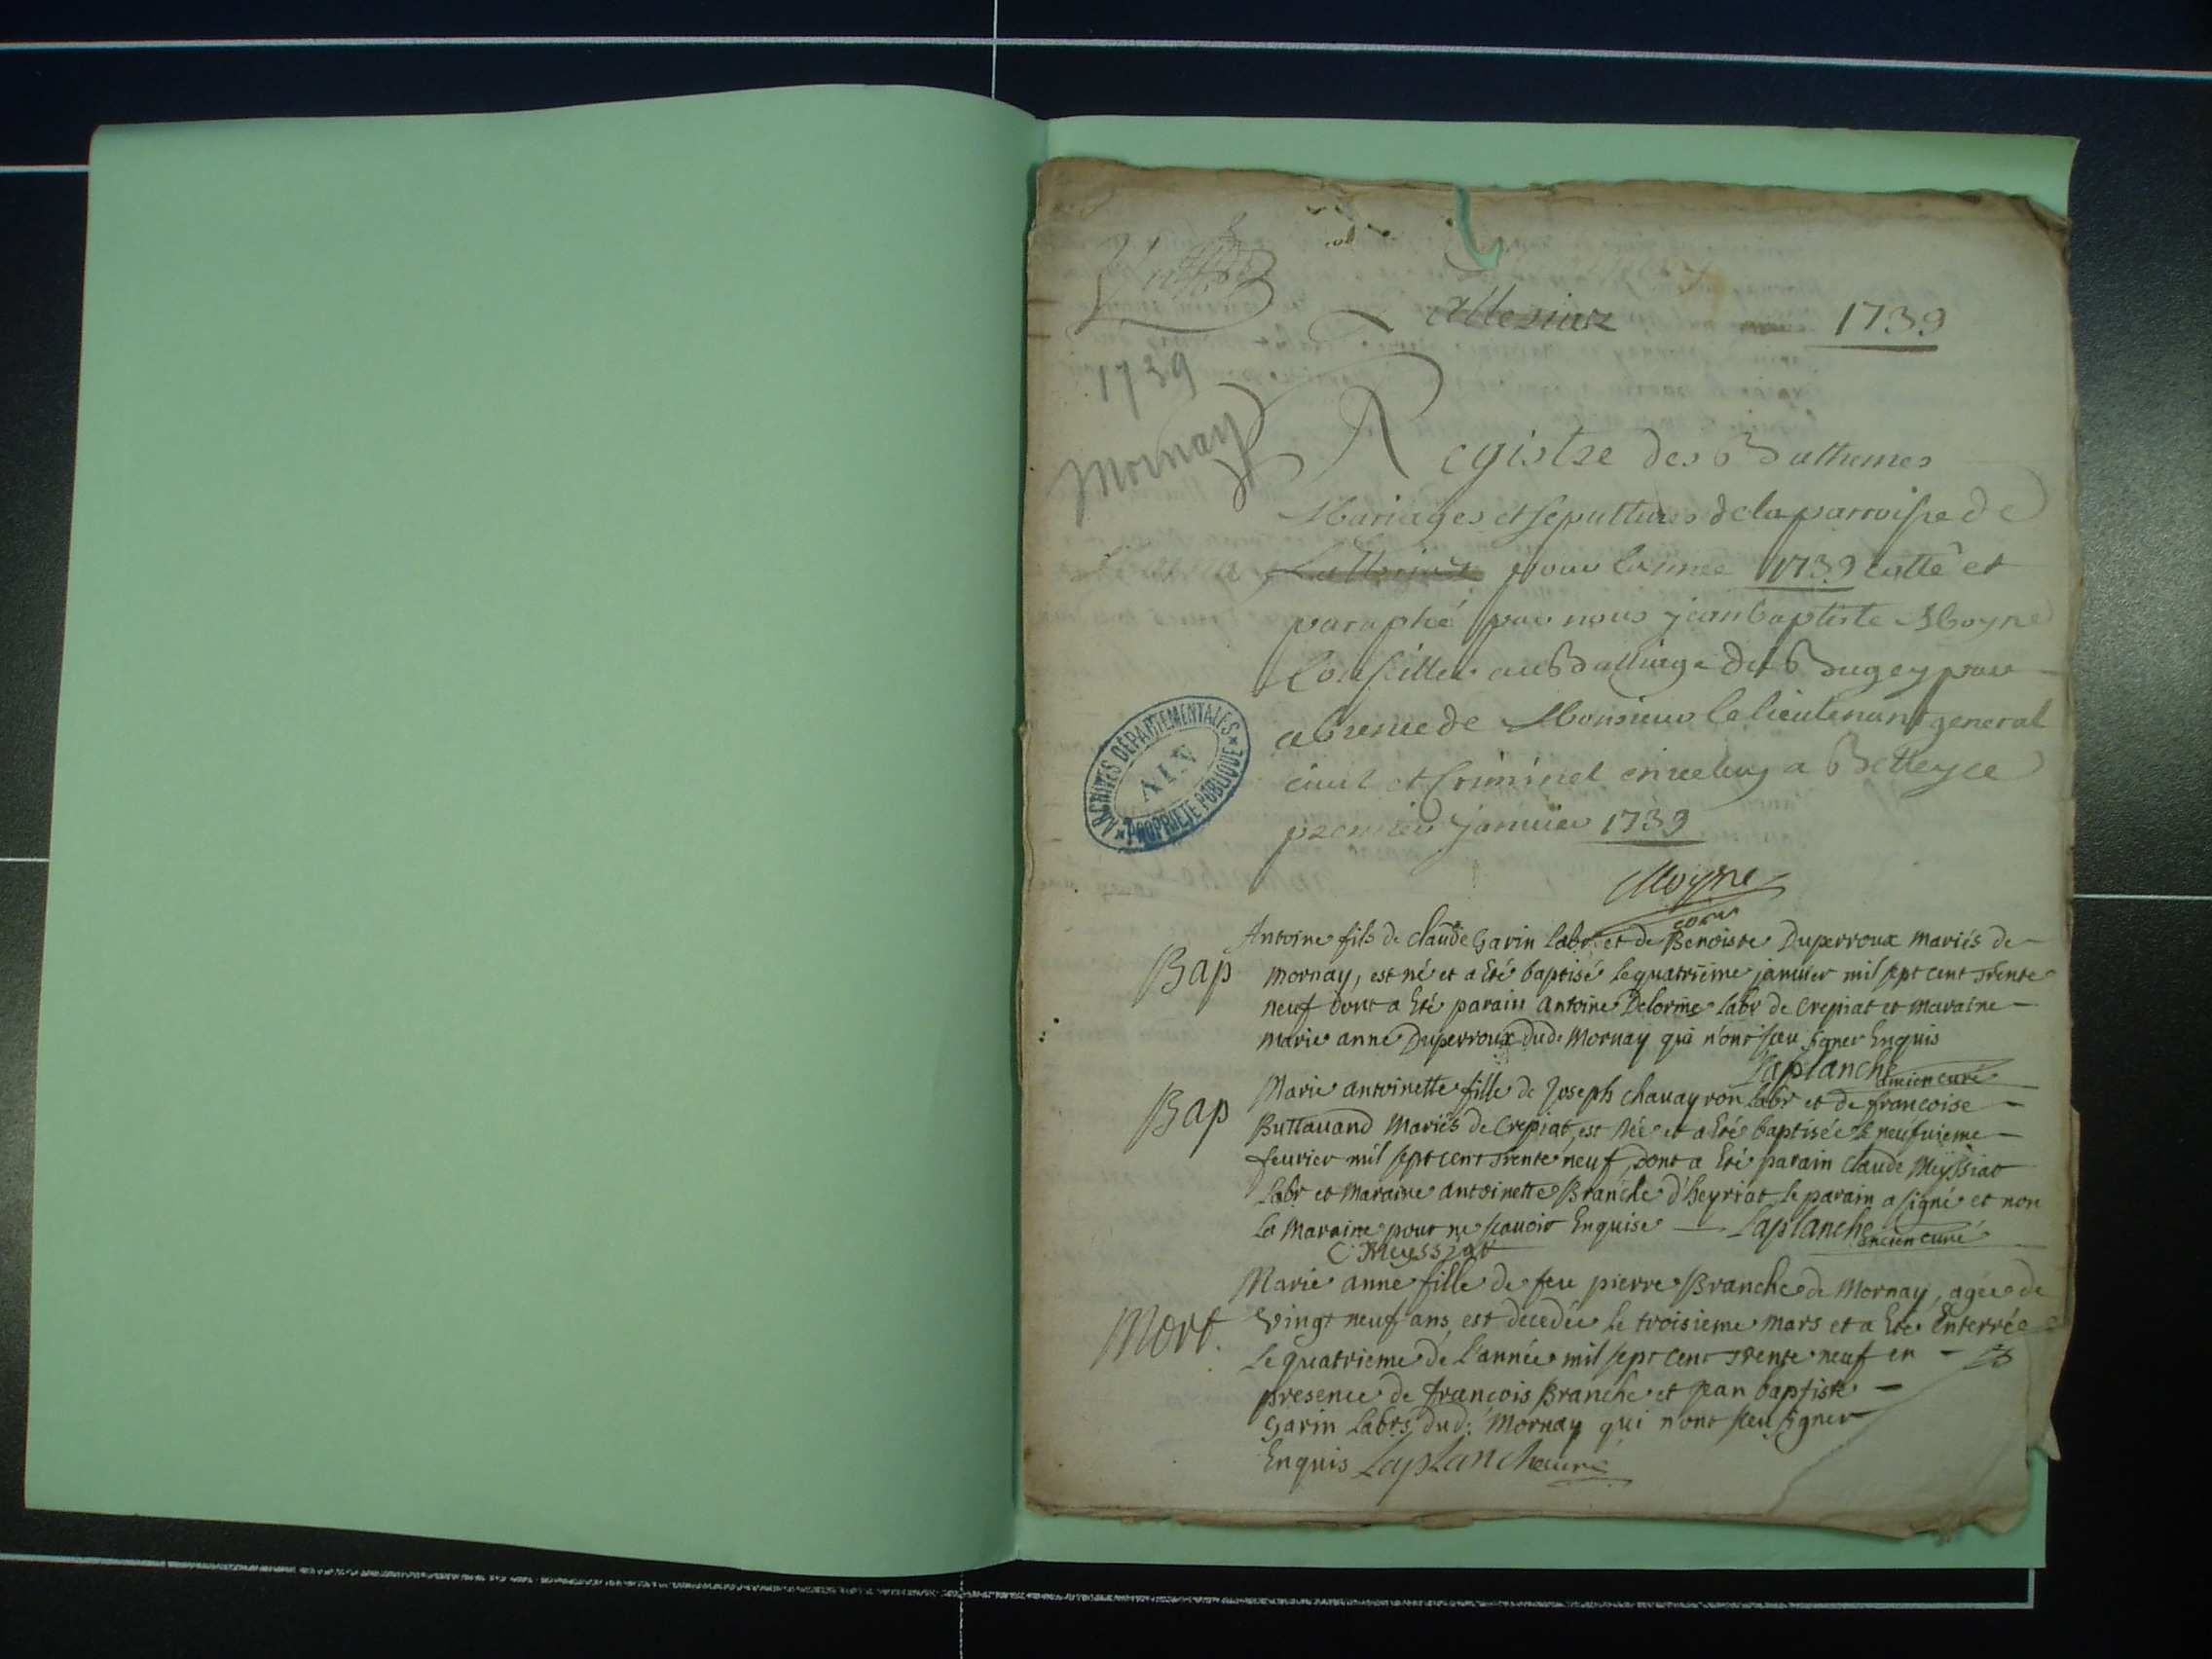 1739
1739
Mornay
Registre des Bathemes
Mariages et sepultures de la parroisse de
pour lannee 1739 cotté et
paraphé par nous jean baptiste Moyne
Conseiller au Balliage de Bugey pour
absence de Monsieur le lieutenant general
civil et Criminel a Belley ce
premier janvier 1739
Moyne
ARCHIVES DÉPARTEMENTALES
AIN
PROPRIÉTÉ PUBLIQUE
Bap
Antoine fils de claude Garin labr et de Benoiste Duperroux mariés de
mornay, est né et a eté baptisé le quatrième janvier mil sept cent trente
neuf dont a eté parain antoine Delorme labr de Crepiat et maraine
marie anne Duperroux dud. Mornay qui n'ont sceu signer Enquis
Laplanche ancien curé
Bap
Marie antoinette fille de Joseph chavayron labr et de francoise
Buttavand Mariés de Crepiat, est née et a eté baptisée le neufvieme
fevrier mil sept cent trente neuf, dont a eté parain claude Meyssiat
labr et Maraine antoinette Branche d'heyriat le parain a signé et non
la Maraine pour ne scavoir Enquise Laplanche ancien curé
C. Meyssiat
Mort.
Marie anne fille de feu pierre Branche de Mornay, agée de
vingt neuf ans, est decedée le troisieme mars et a eté Enterrée
le quatrieme de l'année mil sept cent trente neuf en
presence de francois Branche et Jean baptiste
Garin labrs dud. Mornay qui n'ont sceu signer
Enquis Laplanche curé